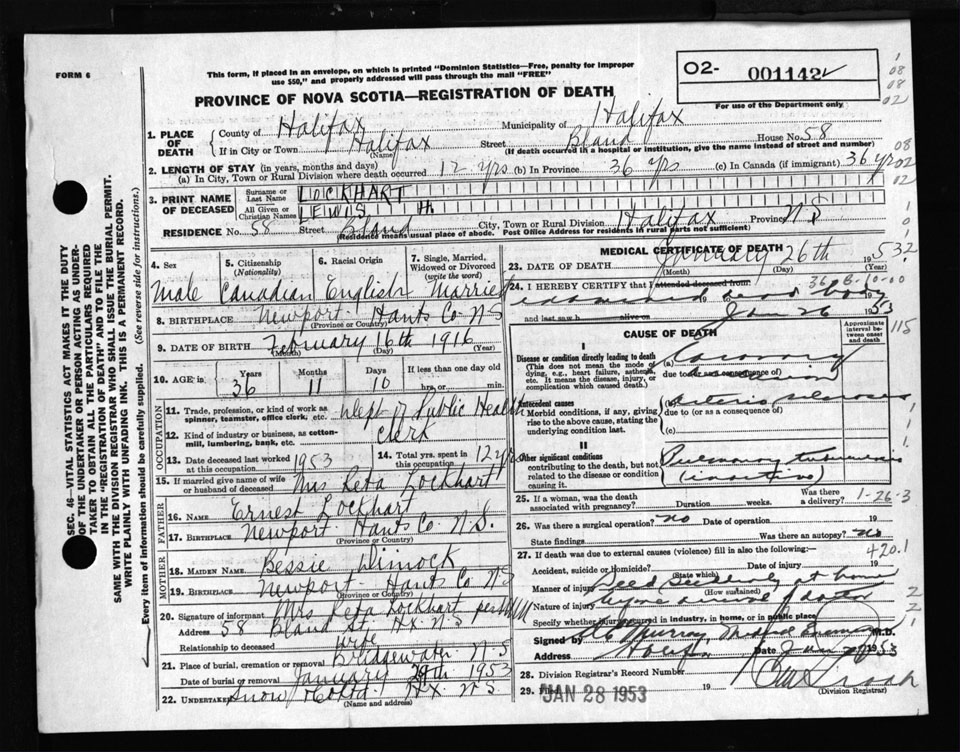 FORM 6
This form, if placed in an envelope, on which is printed "Dominion Statistics—Free, penalty for improper
use $50," and properly addressed will pass through the mail "FREE"
PROVINCE OF NOVA SCOTIA—REGISTRATION OF DEATH
O2- 001142
For use of the Department only
1. PLACE OF DEATH
County of Halifax Municipality of Halifax
If in City or Town Halifax Street Bland House No. 58
(Name) (If death occurred in a hospital or institution, give the name instead of street and number)
2. LENGTH OF STAY (in years, months and days)
(a) In City, Town or Rural Division where death occurred 12 yrs (b) In Province 36 yrs (c) In Canada (if immigrant) 36 yr
3. PRINT NAME OF DECEASED
Surname or Last Name LOCKHART
All Given or Christian Names LEWIS H.
RESIDENCE No. 58 Street Bland City, Town or Rural Division Halifax Province N S
(Residence means usual place of abode. Post Office Address for residents in rural parts not sufficient)
4. Sex
5. Citizenship (Nationality)
6. Racial Origin
7. Single, Married, Widowed or Divorced (write the word)
Male Canadian English Married
8. BIRTHPLACE Newport Hants Co N S
(Province or Country)
9. DATE OF BIRTH February 16th 1916
(Month) (Day) (Year)
10. AGE in Years Months Days If less than one day old
36 11 10 hrs. or min.
OCCUPATION
11. Trade, profession, or kind of work as spinner, teamster, office clerk, etc. Dept of Public Health
12. Kind of industry or business, as cotton-mill, lumbering, bank, etc. Clerk
13. Date deceased last worked at this occupation 1953
14. Total yrs. spent in this occupation 12 yrs
15. If married give name of wife or husband of deceased Mrs Reta Lockhart
FATHER
16. NAME Ernest Lockhart
17. BIRTHPLACE Newport Hants Co. N.S.
(Province or Country)
MOTHER
18. MAIDEN NAME Bessie Dimock
19. BIRTHPLACE Newport Hants Co N S
(Province or Country)
20. Signature of informant Mrs Reta Lockhart per
Address 58 Bland St. Hx. N S
Relationship to deceased wife
21. Place of burial, cremation or removal Bridgewater N S
Date of burial or removal January 1953
22. UNDERTAKER Snow Hx. N S.
(Name and address)
MEDICAL CERTIFICATE OF DEATH
23. DATE OF DEATH January 26th 1953
(Month) (Day) (Year)
24. I HEREBY CERTIFY that I attended deceased from:
examined dead body
and last saw h alive on Jan 26 1953
CAUSE OF DEATH
Approximate interval between onset and death
I
Disease or condition directly leading to death
(This does not mean the mode of dying, e.g., heart failure, asthenia, etc. It means the disease, injury, or complication which caused death.)
(a) Coronary occlusion
due to (or as consequence of)
Antecedent causes
Morbid conditions, if any, giving rise to the above cause, stating the underlying condition last.
(b) Arterio sclerosis
due to (or as a consequence of)
(c)
II
Other significant conditions
contributing to the death, but not related to the disease or condition causing it.
Pulmonary tuberculosis
(inactive)
25. If a woman, was the death associated with pregnancy? Duration weeks. Was there a delivery?
1-26-3
26. Was there a surgical operation? no Date of operation 19
State findings Was there an autopsy? no
27. If death was due to external causes (violence) fill in also the following:
420.1
Accident, suicide or homicide? 19
(State which)
Manner of injury Died suddenly at home
(How sustained)
Nature of injury before arrival of doctor
Specify whether injury occurred in industry, in home, or in public place
Signed by Murray, Medical Examiner M.D.
Address Halifax Date Jan 1953
28. Division Registrar's Record Number
29. Filed JAN 28 1953 19
(Division Registrar)
SEC. 46—VITAL STATISTICS ACT MAKES IT THE DUTY
OF THE UNDERTAKER OR PERSON ACTING AS UNDER-
TAKER TO OBTAIN ALL THE PARTICULARS REQUIRED
IN THE "REGISTRATION OF DEATH" AND TO FILE THE
SAME WITH THE DIVISION REGISTRAR WHO SHALL ISSUE THE BURIAL PERMIT.
WRITE PLAINLY WITH UNFADING INK. THIS IS A PERMANENT RECORD.
Every item of information should be carefully supplied. (See reverse side for instructions.)